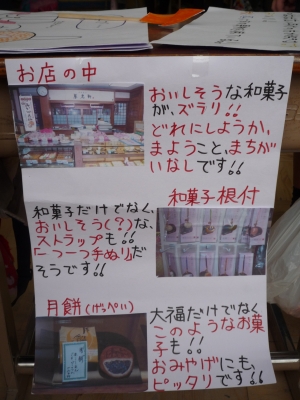 お店の中
おいしそうな和菓子
が、ズラリ!!
どれにしようか、
まようこと、まちが
いなしです!!
和菓子だけでなく、
おいしそう(?)な、
ストラップも!!
「一つ一つ手ぬり」だ
そうです!!
和菓子根付
月餅(げっぺい)
大福だけでなく
このようなお菓
子も!!
おみやげにも、
ピッタリです!!